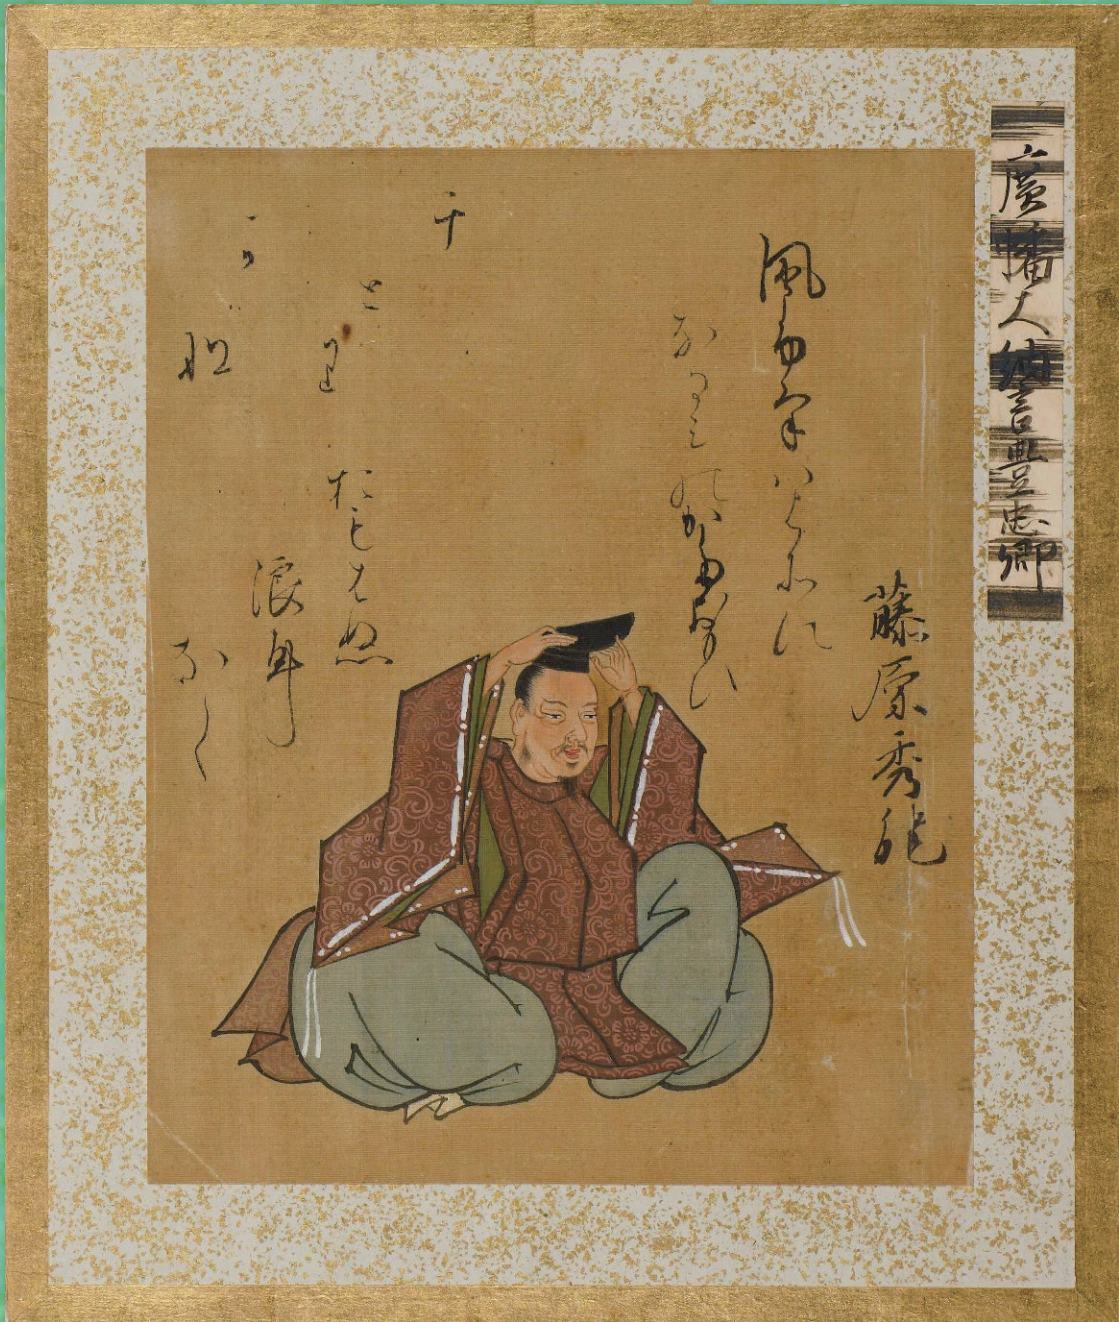 廣幡大納言豊忠卿
藤原秀能
風ふけはよそに
なるみのかたおもひ
おもはぬ
浪に
なく
千
とり
か
那